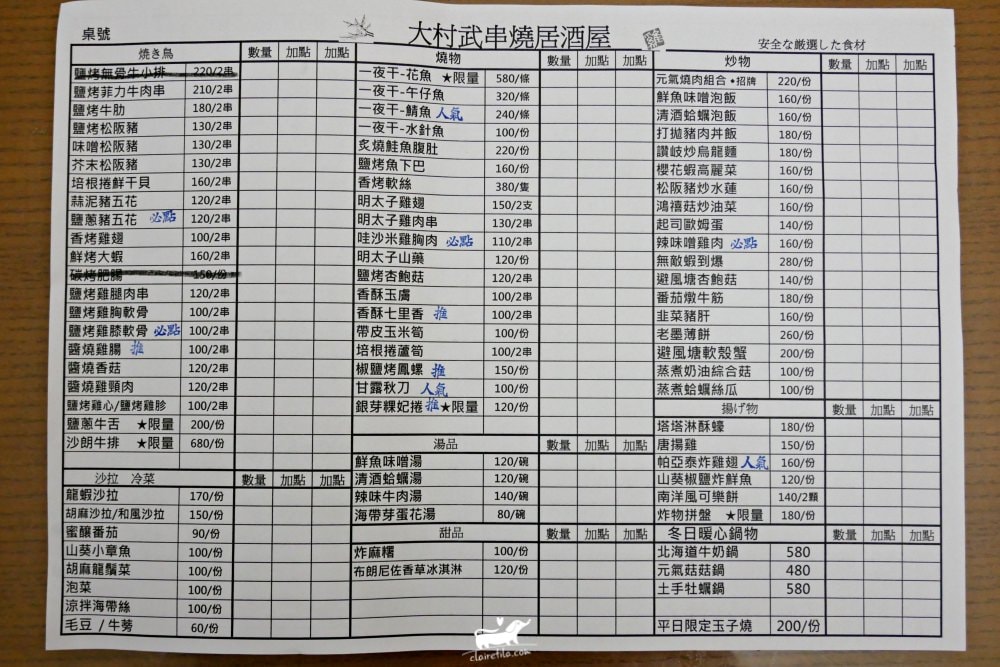 桌號
大村武串燒居酒屋
安全な厳選した食材
焼き鳥 數量 加點 加點
鹽烤無骨牛小排 220/2串
鹽烤菲力牛肉串 210/2串
鹽烤牛肋 180/2串
鹽烤松阪豬 130/2串
味噌松阪豬 130/2串
芥末松阪豬 130/2串
培根捲鮮干貝 160/2串
蒜泥豬五花 120/2串
鹽蔥豬五花 必點 120/2串
香烤雞翅 100/2串
鮮烤大蝦 160/2串
碳烤肥腸 150/份
鹽烤雞腿肉串 120/2串
鹽烤雞胸軟骨 100/2串
鹽烤雞膝軟骨 必點 100/2串
醬燒雞腸 推 100/2串
醬燒香菇 120/2串
醬燒雞頸肉 120/2串
鹽烤雞心/鹽烤雞胗 100/2串
鹽蔥牛舌 ★限量 200/份
沙朗牛排 ★限量 680/份
沙拉 冷菜 數量 加點 加點
龍蝦沙拉 170/份
胡麻沙拉/和風沙拉 150/份
蜜釀番茄 90/份
山葵小章魚 100/份
胡麻龍鬚菜 100/份
泡菜 100/份
涼拌海帶絲 100/份
毛豆 / 牛蒡 60/份
燒物 數量 加點 加點
一夜干-花魚 ★限量 580/條
一夜干-午仔魚 320/條
一夜干-鯖魚 人氣 240/條
一夜干-水針魚 100/份
炙燒鮭魚腹肚 220/份
鹽烤魚下巴 160/份
香烤軟絲 380/隻
明太子雞翅 150/2支
明太子雞肉串 130/2串
哇沙米雞胸肉 必點 110/2串
明太子山藥 120/份
鹽烤杏鮑菇 120/2串
香酥玉膚 100/2串
香酥七里香 推 100/2串
帶皮玉米筍 100/份
培根捲蘆筍 100/2串
椒鹽烤鳳螺 推 150/份
甘露秋刀 人氣 100/份
銀芽粿妃捲 推 ★限量 120/份
湯品 數量 加點 加點
鮮魚味噌湯 120/碗
清酒蛤蠣湯 120/碗
辣味牛肉湯 140/碗
海帶芽蛋花湯 80/碗
甜品 數量 加點 加點
炸麻糬 100/份
布朗尼佐香草冰淇淋 120/份
炒物 數量 加點 加點
元氣燒肉組合 ★招牌 220/份
鮮魚味噌泡飯 160/份
清酒蛤蠣泡飯 160/份
打拋豬肉丼飯 180/份
讚岐炒烏龍麵 180/份
櫻花蝦高麗菜 160/份
松阪豬炒水蓮 160/份
鴻禧菇炒油菜 160/份
起司歐姆蛋 140/份
辣味噌雞肉 必點 160/份
無敵蝦到爆 280/份
避風塘杏鮑菇 140/份
番茄燉牛筋 180/份
韭菜豬肝 160/份
老墨薄餅 260/份
避風塘軟殼蟹 200/份
蒸煮奶油綜合菇 100/份
蒸煮蛤蠣絲瓜 100/份
揚げ物 數量 加點 加點
塔塔淋酥蠔 180/份
唐揚雞 150/份
帕亞泰炸雞翅 人氣 160/份
山葵椒鹽炸鮮魚 120/份
南洋風可樂餅 140/2顆
炸物拼盤 ★限量 180/份
冬日暖心鍋物 數量 加點 加點
北海道牛奶鍋 580
元氣菇菇鍋 480
土手牡蠣鍋 580
平日限定玉子燒 200/份
clairetila.com